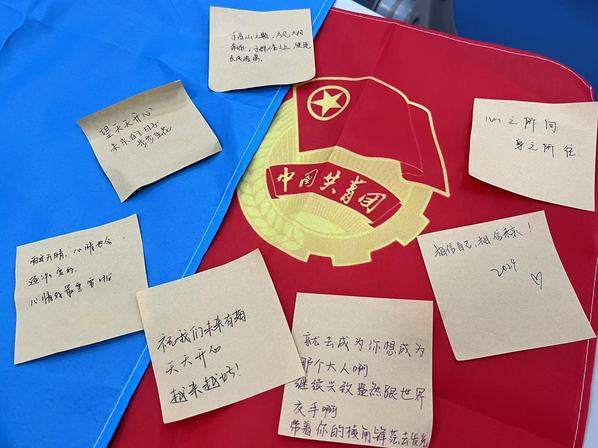 于高山之巅，方见大河
奔涌，于群峰之上，便觉
长风浩荡。
望天天开心
未来的日子
步步生花
心之所向
身之所往
中国共青团
相信自己，相信未来！
2024
雨天晴，心情也会
逐渐变好，
心情好最重要啦
祝我们未来有期
天天开心
越来越好！
就去成为你想成为
那个大人啊
继续兴致盎然跟世界
交手啊
带着你的棱角锋芒去发光